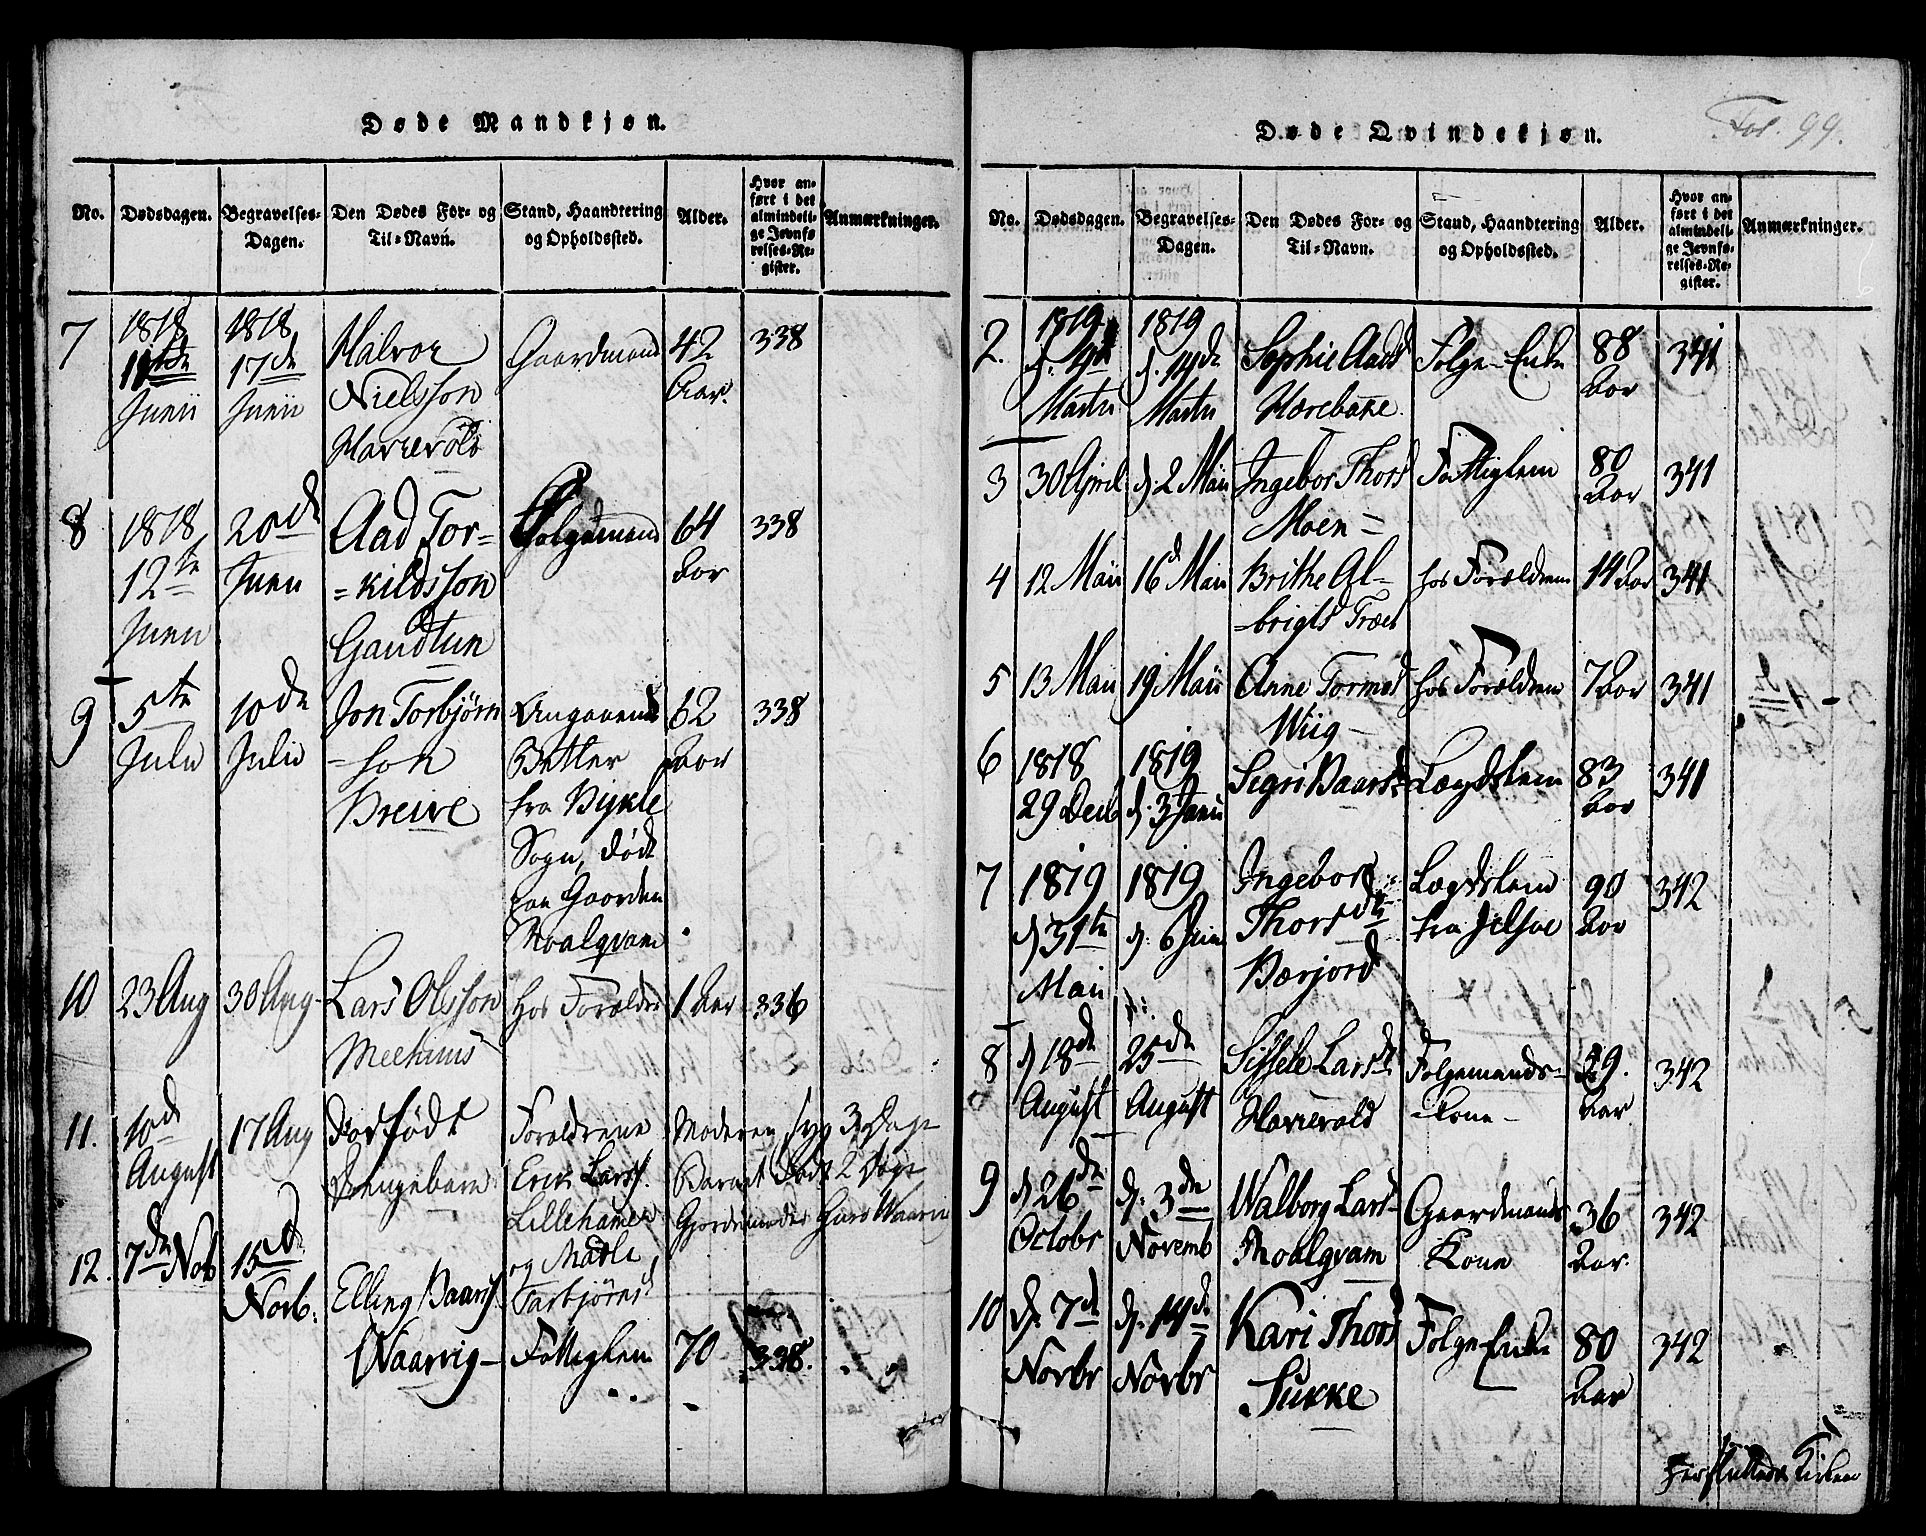 Døde Mandkjøn.
No. Dødsdagen. Begravelses-Dagen. Den Dødes For- og Til-Navn. Stand, Haandtering og Opholdssted. Alder. Hvor anført i det almindelige Jevnførelses-Register. Anmærkninger.
7 1818 11te Junii 1818 17de Junii Halvor Nielsson Havrevold Gaardmand 42 Aar. 338
8 1818 12te Junii 20de Junii Aad Tor=
=kildsson Gautun Folgemand 64 Aar 338
9 5te Julii 10de Julii Jon Torbjørn
-son Breive Omgaaende Betler fra Bykle Sogn, død paa Gaarden Hoalqvam 62 Aar 338
10 23 Aug 30 Aug Lars Olsson Meehuus hos Forældre 1 Aar 336
11. 10de August 17 Aug Dødfødt Drengebarn Forældrene Erik Larss. Lillehamer og Madle Tarbjørnsd Moderen syg 3 Dage
Barnet død 2 Dage
Gjordemoder Guro Waarvi
12. 7de Novb 15de Novb. Elling Baars. Waarvig Fattiglem 70 338.
Døde Qvindekjøn.
Fol. 99.
No. Dødsdagen. Begravelses-Dagen. Den Dødes For- og Til-Navn. Stand, Haandtering og Opholdssted. Alder. Hvor anført i det almindelige Jevnførelses-Register. Anmærkninger.
2. 1819 d. 9de Martii 1819 d. 14de Martii Sophie Aadsd Hærebakke Folge-Enke 88 Aar 341
3 30 April d. 2 Maii Ingebor Thorsd Moen= Fattiglem 80 Aar 341
4 12 Maii 16d Maii Brithe Al-
-brigts Træet hos Forældrene 14 Aar 341
5 13 Maii 19 Maii Anne Tormod Wiig- hos Forældrene 7 Aar 341
6 1818 29 Decb 1819 d. 3 Janu Segri Baarsd Lægdslem 83 Aar 341
7 1819 d 31te Maii 1819 d. 6 Junii Ingebor Thorsdtr Børjord Lægdslem fra Jelsøe 90 Aar 342
8 d 18de August 25de August Sissele Larsdt Havrevold Folgemands-
-kone- 29. Aar 342
9 d 26de Octobr d. 3de Novemb Walborg Larsd Hoalqvam Gaardmands Kone 36 Aar. 342
10 d. 7de Novbr d. 14de Novbr Kari Thorsd Sukke Folge-Enke 80 Aar 342